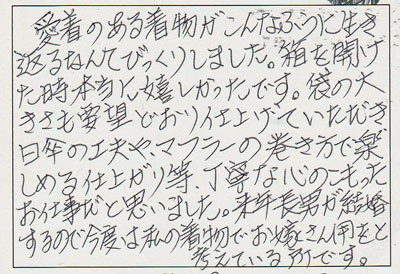 愛着のある着物がこんなふうに生き
返るなんてびっくりしました。箱を開け
た時本当に嬉しかったです。袋の大
きさも要望どおり仕上げていただき
日傘の工夫や、マフラーの巻き方で楽
しめる仕上がり等、丁寧な心のこもった
お仕事だと思いました。来年長男が結婚
するので今度は私の着物でお嫁さん用をと
考えている所です。